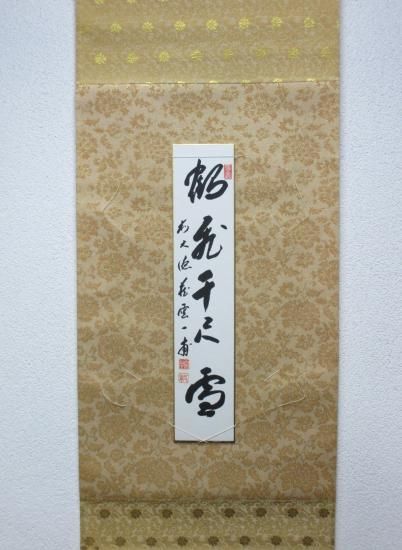 鶴飛千尺雪
前大徳 藤雲一甫